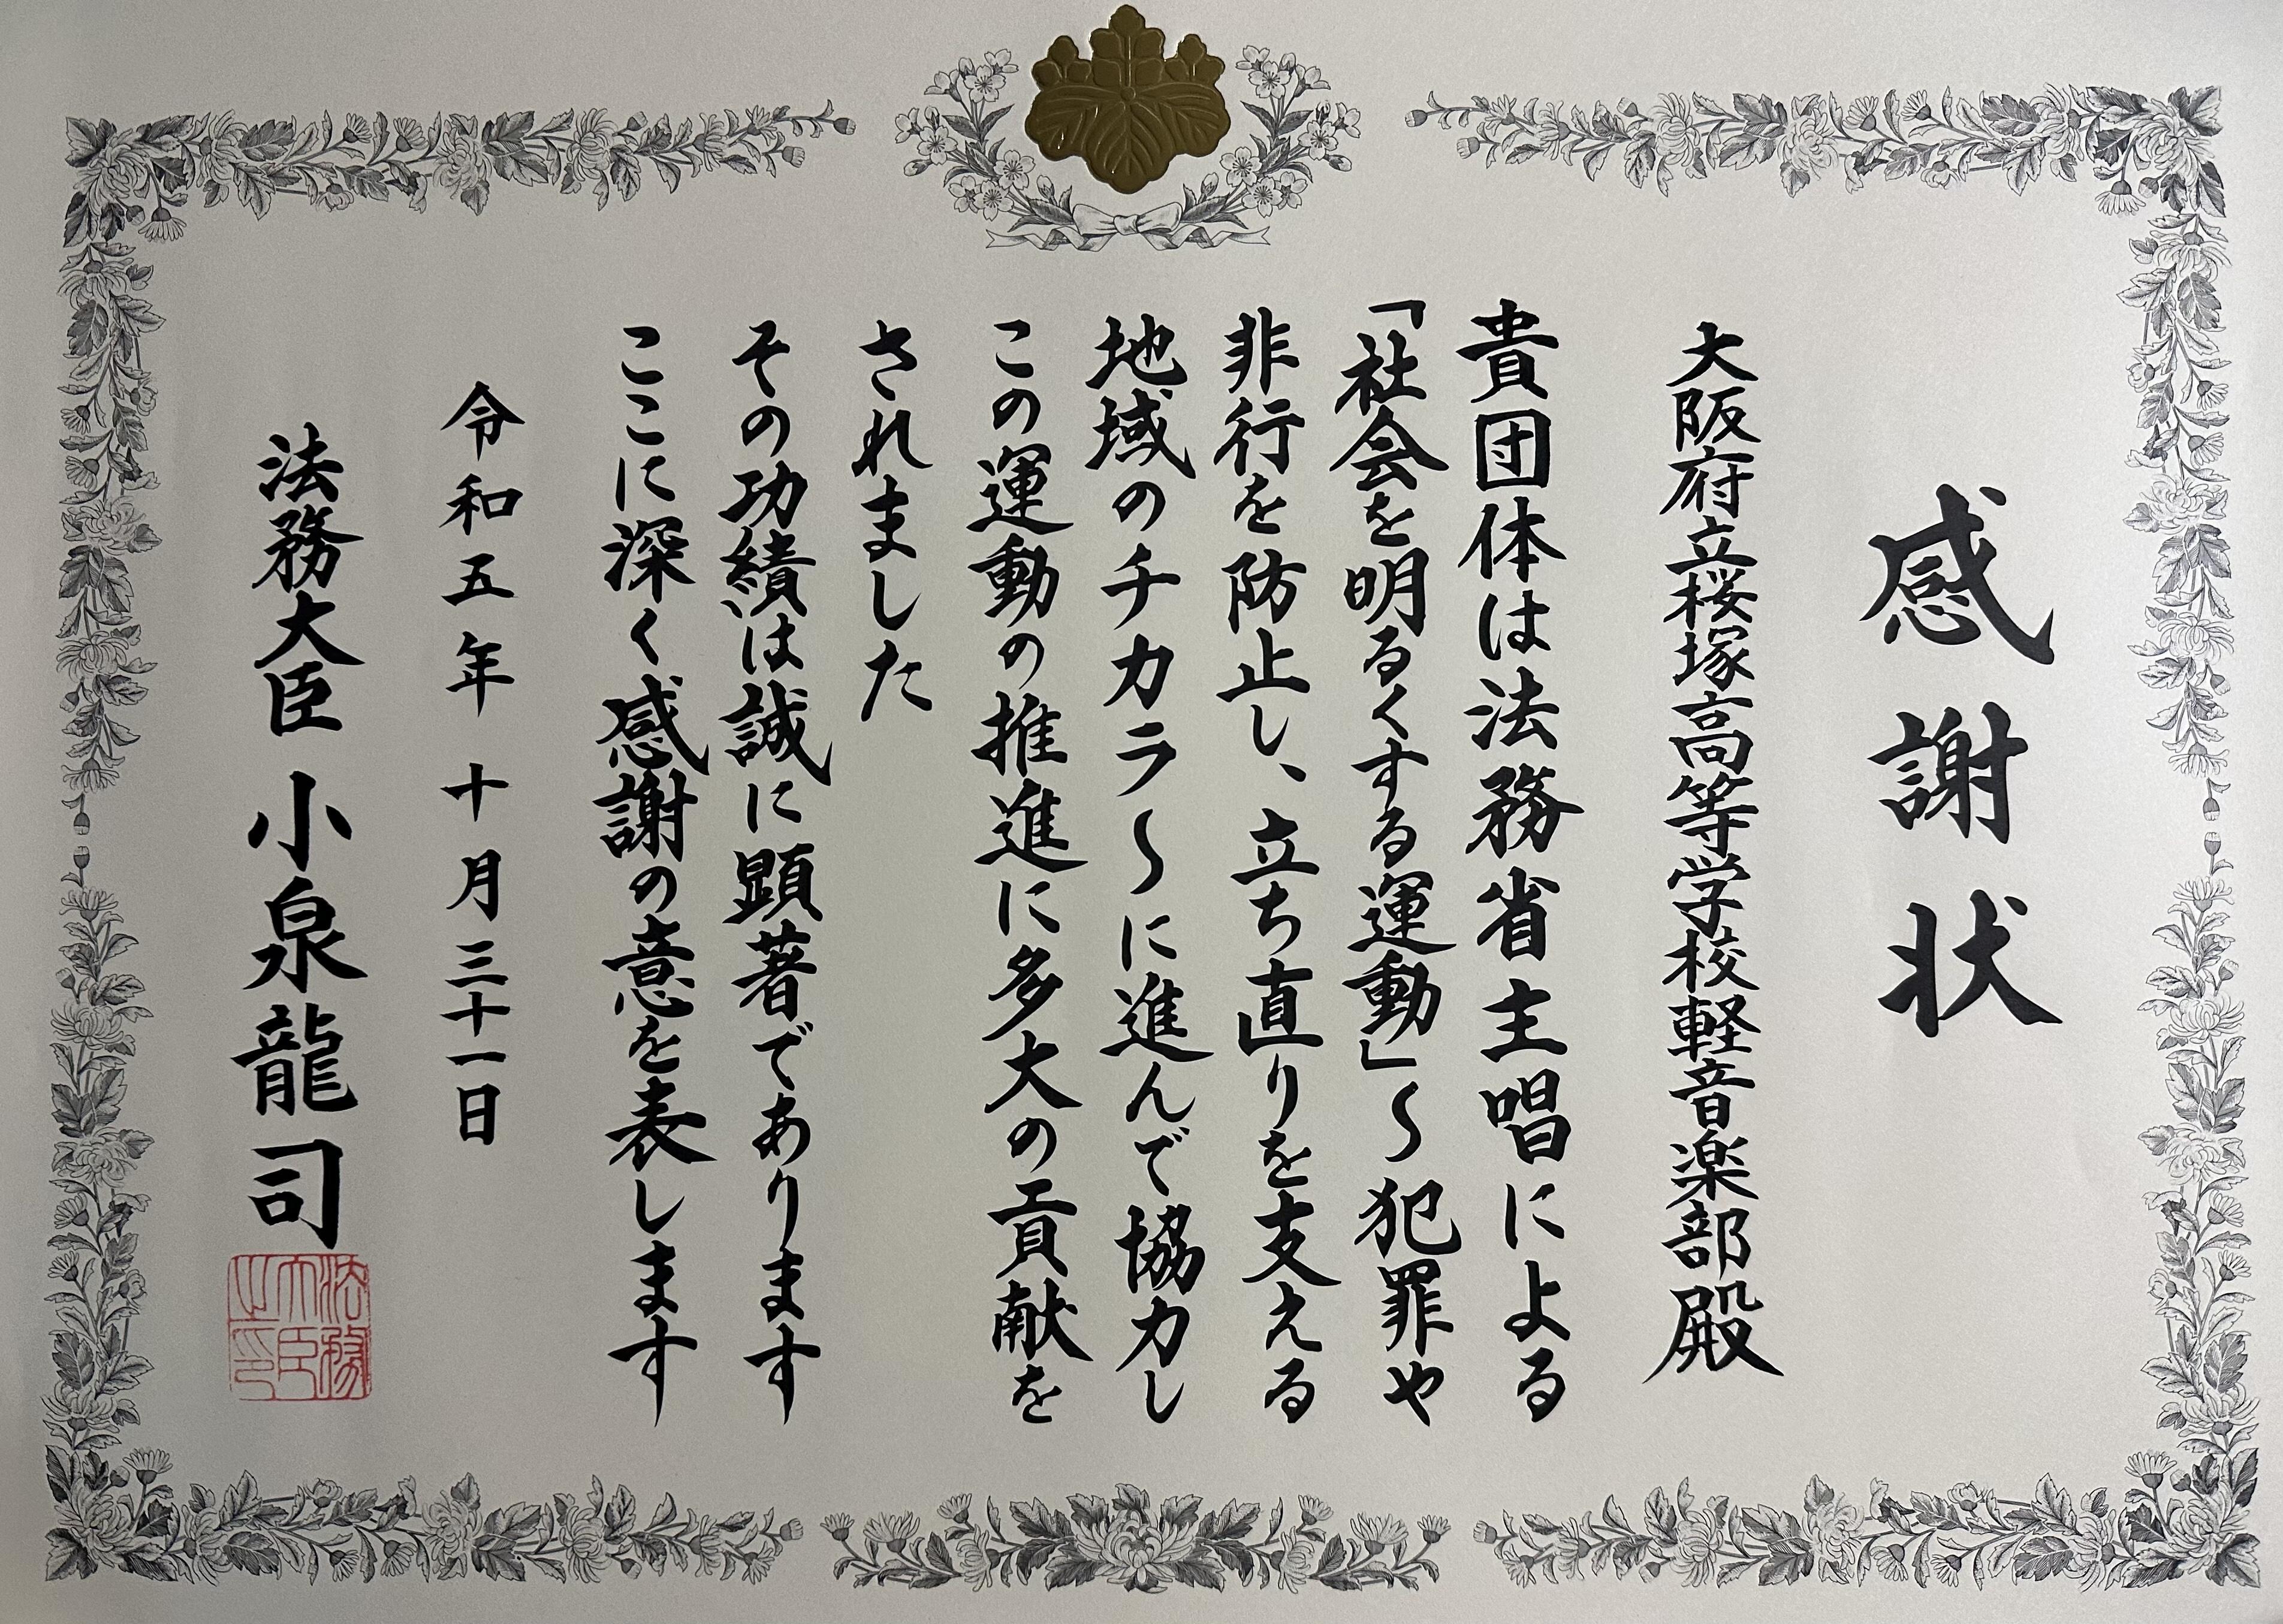 感謝状
大阪府立桜塚高等学校軽音楽部殿
貴団体は法務省主唱による
「社会を明るくする運動」〜犯罪や
非行を防止し、立ち直りを支える
地域のチカラ〜に進んで協力し
この運動の推進に多大の貢献を
されました
その功績は誠に顕著であります
ここに深く感謝の意を表します
令和五年十月三十一日
法務大臣 小泉龍司
法務
大臣
之印